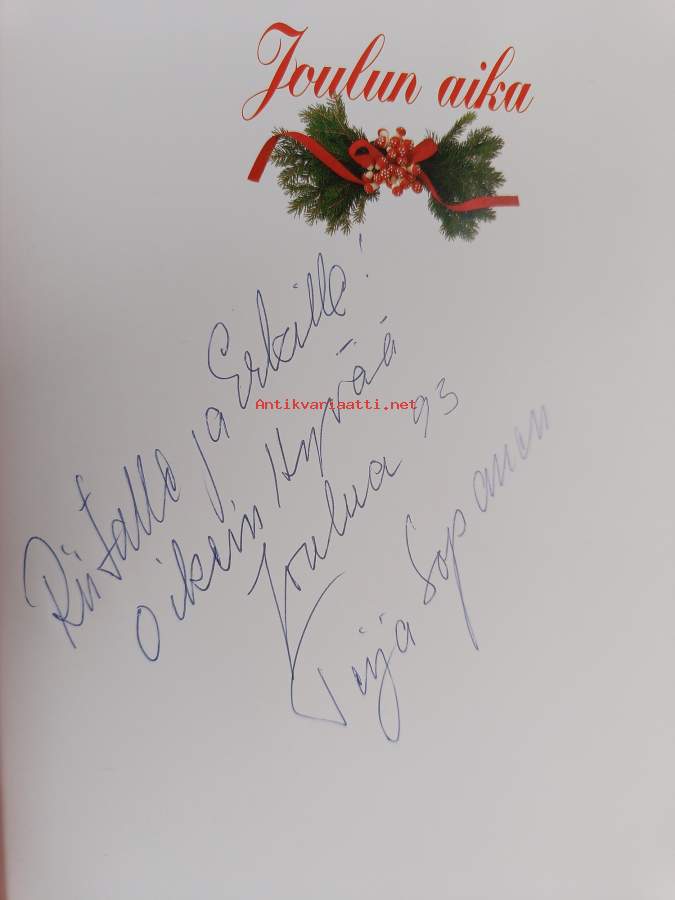 Joulun aika
Riitalle ja Erkille!
oikein Hyvää
Antikvariaatti.net
Joulua 93
Teija Sopanen